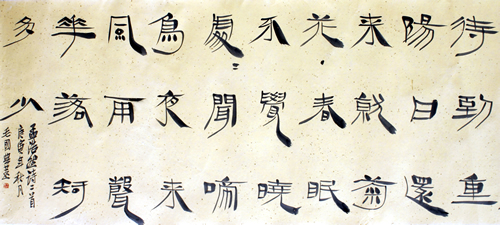 待到重
陽日還
来就菊
花春眠
不覺曉
處〻聞啼
鳥夜来
風雨聲
華落知
多少
孟浩然詩二首
庚寅秋月
毛國典